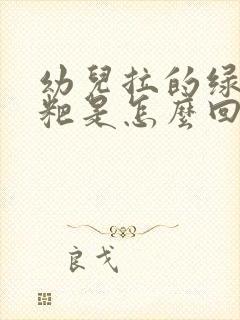 幼兒拉的绿
粑是怎麼回
良戈